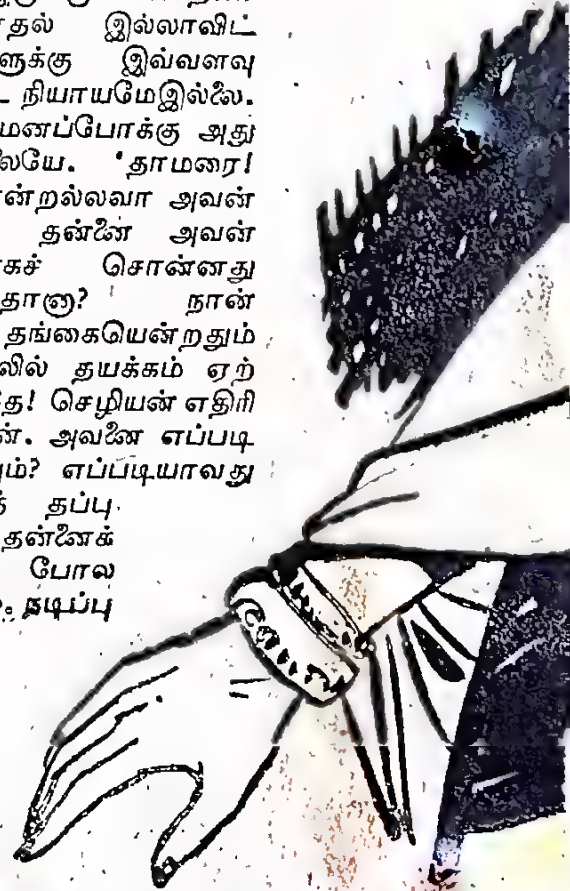 தல் இல்லாவிட்
ளுக்கு இவ்வளவு
நியாயமேஇல்லை.
மனப்போக்கு அது
லையே. 'தாமரை!
ன்றல்லவா அவன்
தன்னை அவன்
கச் சொன்னது
தானா? நான்
தங்கையென்றதும்
லில் தயக்கம் ஏற்
தே! செழியன் எதிரி
ன். அவனை எப்படி
ும்? எப்படியாவது
தப்பு
தன்னைக்
போல
நடிப்பு